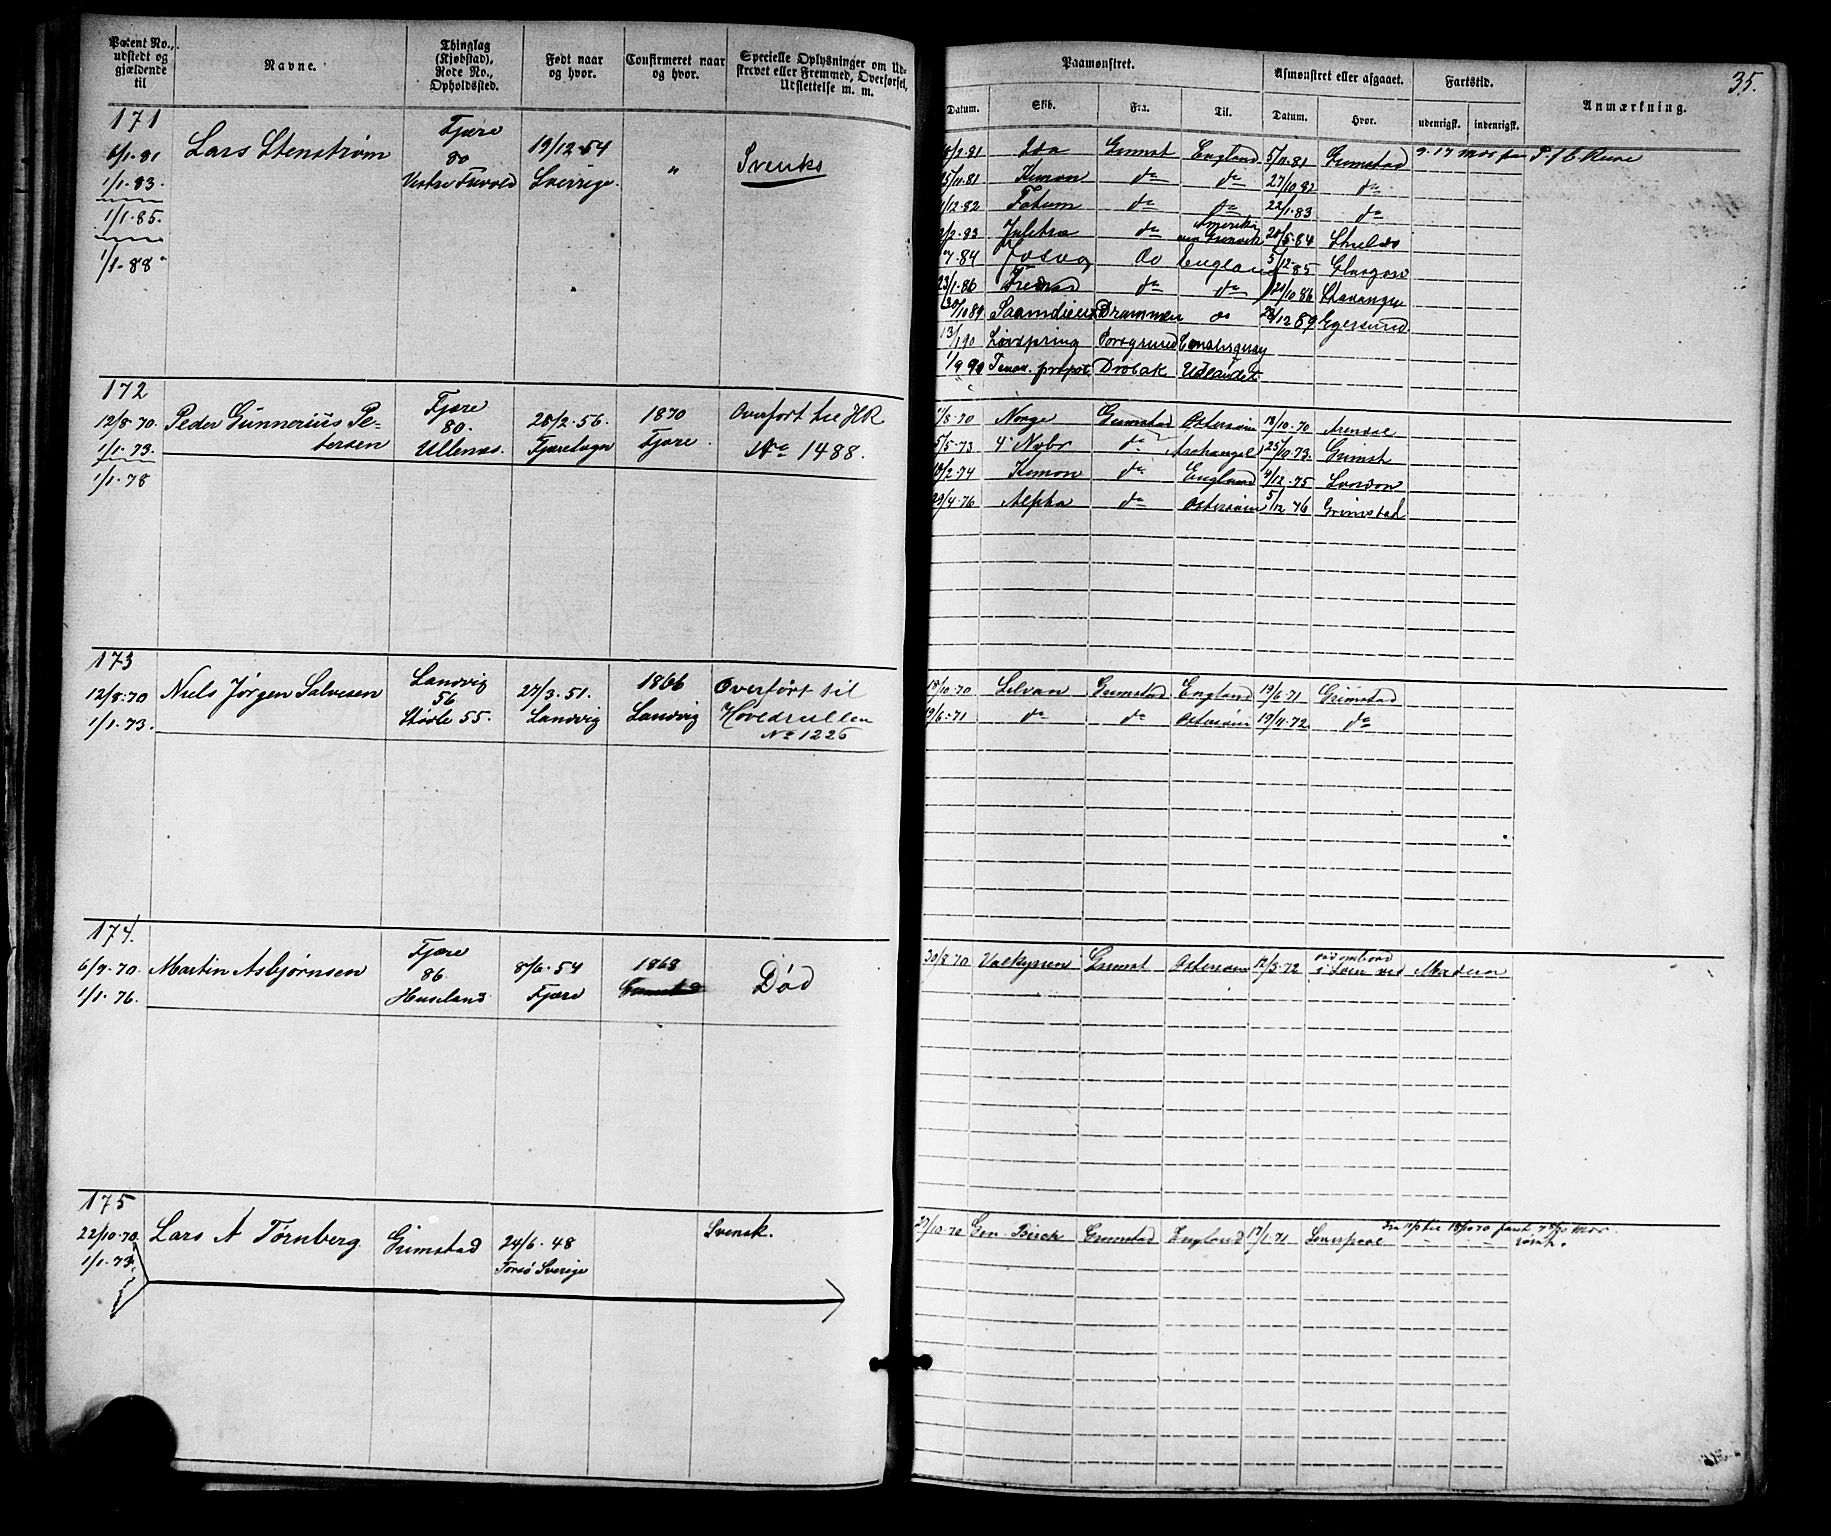 Patent No., udstedt og gjældende til
Navne.
Thinglag (Kjøbstad), Rode No., Opholdssted.
Født naar og hvor.
Confirmeret naar og hvor.
Specielle Oplysninger om Udskrevet eller Fremmed, Overførsel, Udslettelse m. m.
Paamønstret.
Afmønstret eller afgaaet.
Fartstid.
Anmærkning.
35.
Datum.
Skib.
Fra.
Til.
Datum.
Hvor.
udenrigsk.
indenrigsk.
171
6/1·81
1/1·83.
1/1·85.
1/1·88
Lars Stenstrøm
Fjære
80
Vestre
19/12·54
Sverrige.
"
Svensk
/2·81 Ida Grimst England 5/11·81 Grimstad
15/11·81 Kimon do do 27/10·82 do
1/12·82 Fatum do do 22/1·83 do
/2·83 Juletræ do Amerika 20/5·84
7·84 do England 5/12·85 Glasgow
23/1·86 do do /10·86 Stavanger
30/10 89 Drammen do 23/12 89 Egersund
13/1 90 Porsgrund
1/9 90 Drøbak Udlandet
172
12/8·70.
1/1·73.
1/1·78
Peder Gunnerius Petersen
Fjære
80.
Ullenæs.
28/2·56.
Fjæresogn
1870
Fjære.
Overført til HR
No 1488.
/8·70 Norge Grimstad Østersøen 18/10·70 Arendal
5/5·73 4 Nobr do Archangel 25/10·73. Grimst
19/2·74 Kimon do England 4/12·75 London
29/4·76 Alpha do Østersøen 5/12 76 Grimstad
173
12/8·70
1/1·73.
Niels Jørgen Salvesen
Landvig
56
Støle 55.
27/3·51.
Landvig
1866
Landvig
Overført til
Hovedrullen
No 1226
18/10·70 Silvan Grimstad England 19/6·71 Grimstad
19/6·71 do do Østersøen 17/4·72. do
174.
6/9·70.
1/1·76.
Martin Asbjørnsen
Fjære
86.
Huseland
8/6·54
Fjære
1868
Død
30/8·70 Valkyrien Grimst Østersøen 12/3·72
i Søen ved Madeira
175
22/10·70
1/1·73.
Lars A Tørnberg.
Grimstad
24/6·48
Torsö Sverige
Svensk.
27/10·70 Gen. Birch Grimstad England 17/1·71 Liverpool
rømt.